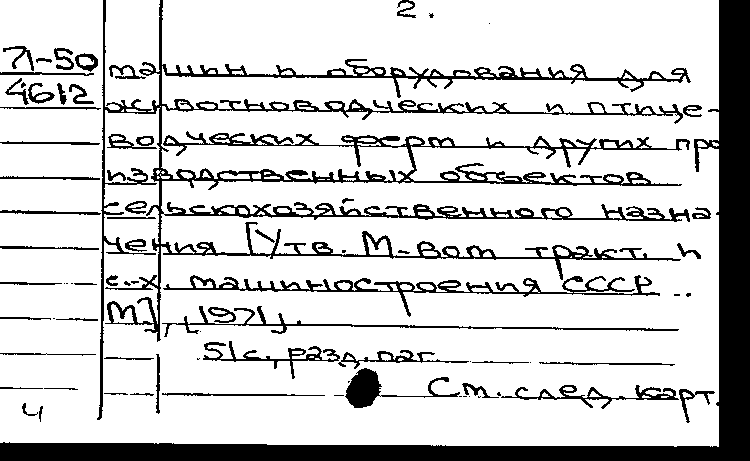 2.
71-50 машин и оборудования для
4612 животноводческих и птице-
водческих ферм и других про
изводственных объектов
сельскохозяйственного назна-
чения [Утв. М-вом тракт. и
с.-х. машиностроения СССР ..
М], [1971].
51с., разд. паг.
См. след. карт.
4